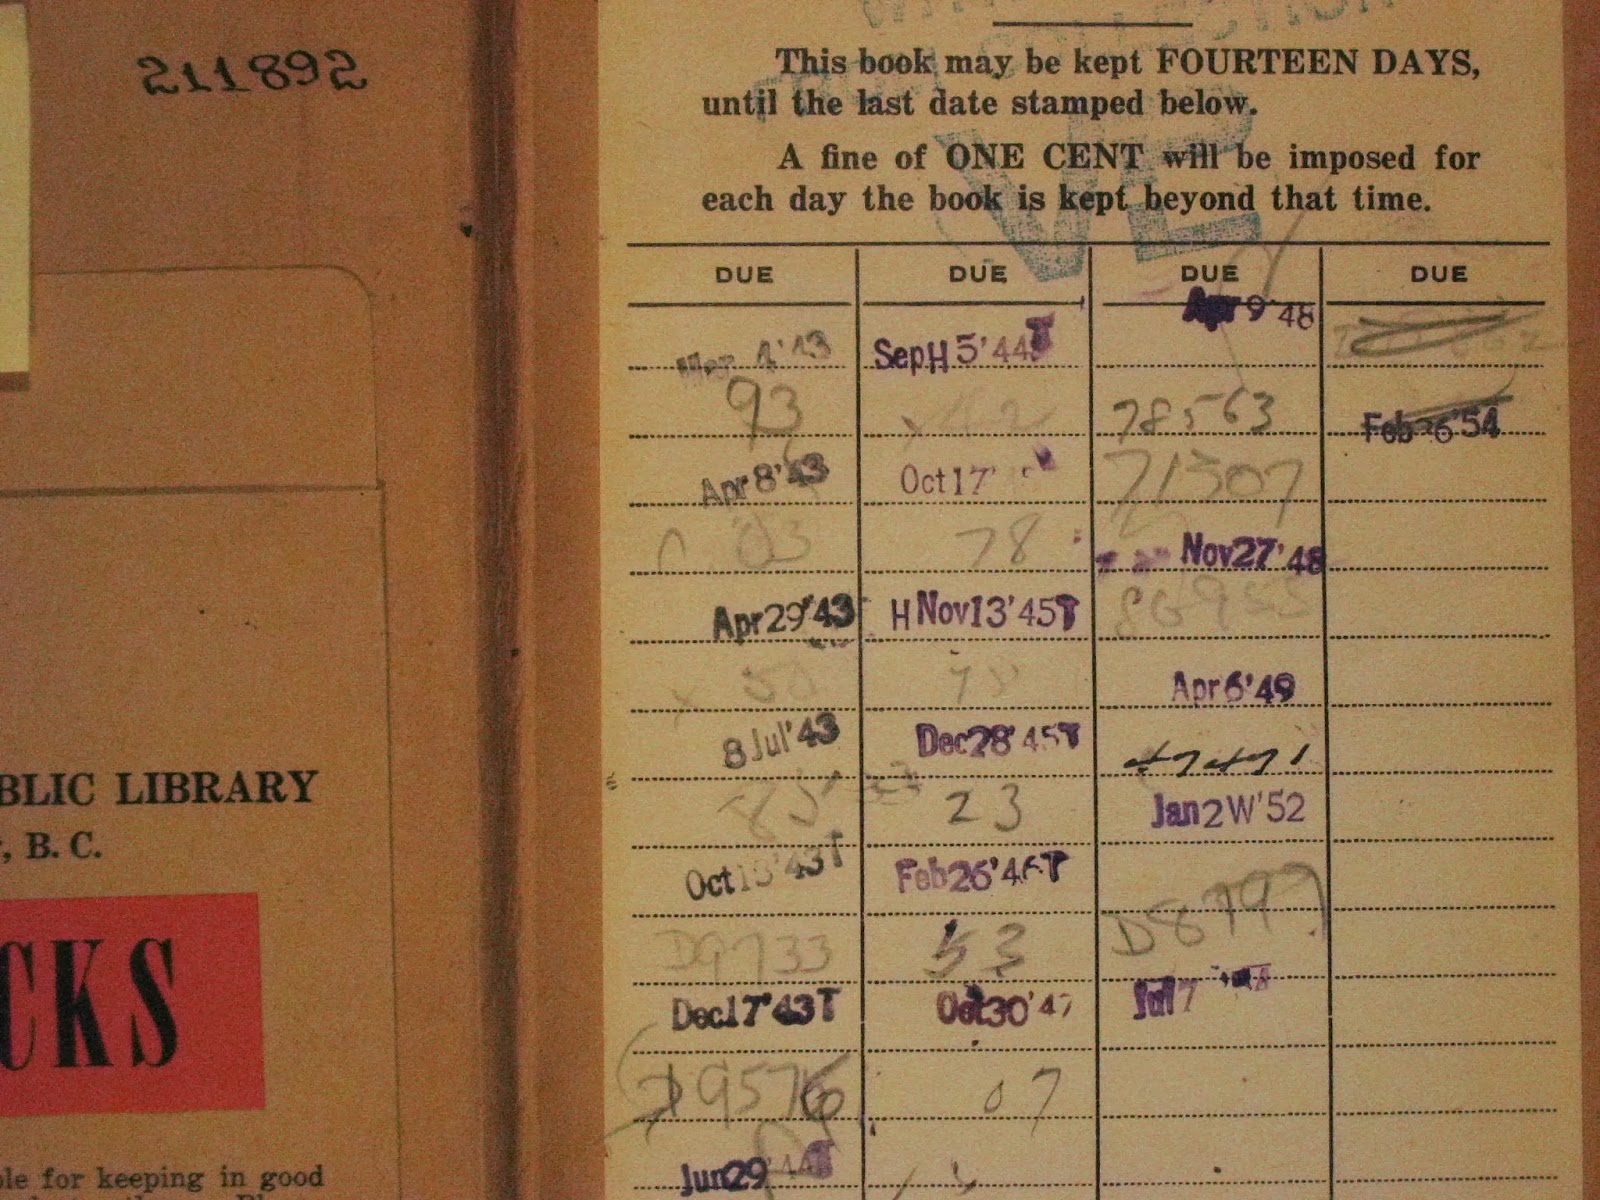 211892
BLIC LIBRARY
, B. C.
CKS
ble for keeping in good
This book may be kept FOURTEEN DAYS,
until the last date stamped below.
A fine of ONE CENT will be imposed for
each day the book is kept beyond that time.
DUE DUE DUE DUE
4'43
93
Apr 8'43
Apr 29'43
50
8 Jul'43
Oct 43T
D9733
Dec 17'43T
9576
Jun 29 '44
Sep H 5'44
Oct 17'
78
H Nov 13'45T
Dec 28'45T
23
Feb 26'46T
53
Oct 30'47
07
Apr 9'48
78563
71507
Nov 27'48
Apr 6'49
47471
Jan 2 W'52
D8797
Jul 7
Feb 26'54